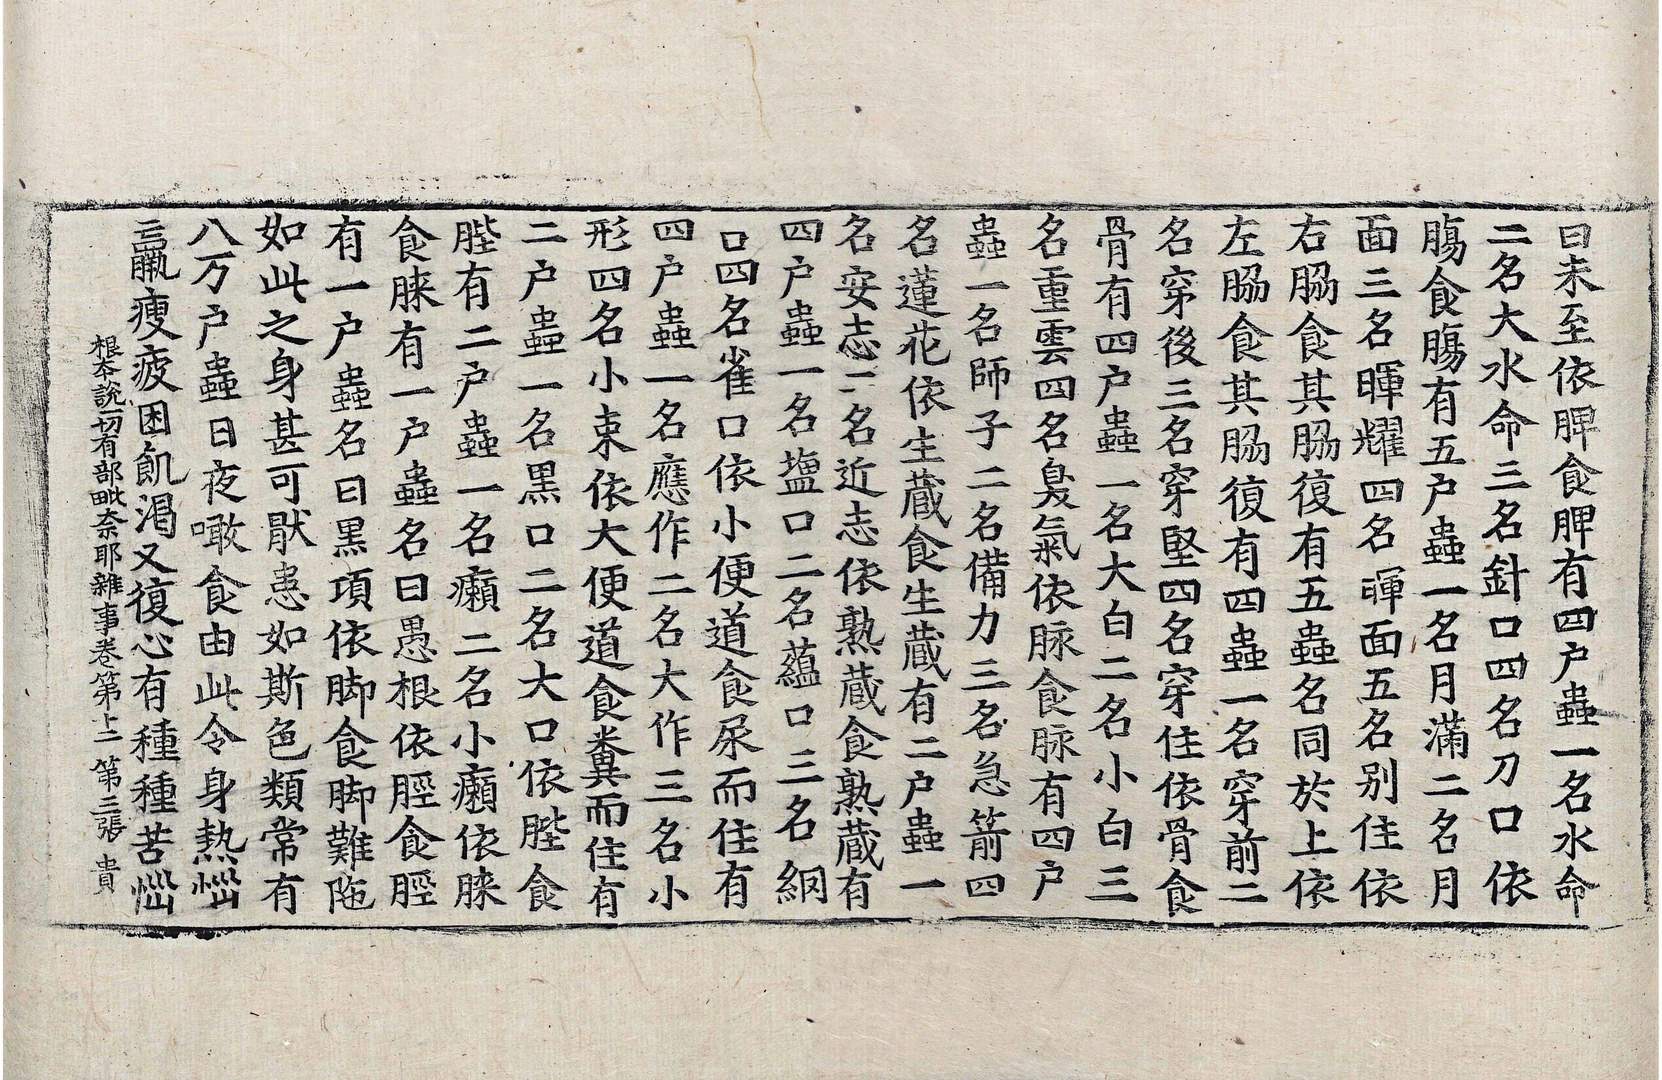 曰未至依脾食脾有四户蟲一名水命
二名大水命三名針口四名刀口依
膓食膓有五户蟲一名月滿二名月
面三名暉耀四名暉面五名别住依
右脇食其脇復有五蟲名同於上依
左脇食其脇復有四蟲一名穿前二
名穿後三名穿堅四名穿住依骨食
骨有四户蟲一名大白二名小白三
名重雲四名臭氣依脉食脉有四户
蟲一名師子二名備力三名急箭四
名蓮花依生藏食生藏有二户蟲一
名安志二名近志依熟藏食熟藏有
四户蟲一名塩口二名蘊口三名網
口四名雀口依小便道食尿而住有
四户蟲一名應作二名大作三名小
形四名小束依大便道食糞而住有
二户蟲一名黒口二名大口依䏶食
䏶有二户蟲一名癩二名小癩依膝
食膝有一户蟲名曰愚根依脛食脛
有一户蟲名曰黒項依脚食脚難陁
如此之身甚可猒患如斯色類常有
八万户蟲日夜噉食由此令身熱惱
羸瘦疲困飢渇又復心有種種苦惱
根本說一切有部毗奈耶雜事卷第十二 第三張 貴